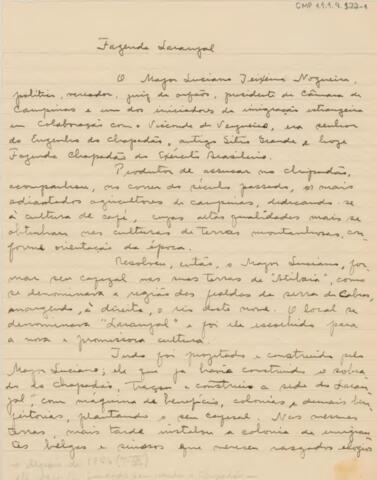 CMP 1.1.1.4.922-1
Fazenda Laranjal
O Major Luciano Teixeira Nogueira,
politico, vereador, juiz de orfãos, presidente da Câmara de
Campinas e um dos iniciadores da imigração estrangeira
em colaboração com o Visconde de Vergueiro, era senhor
do Engenho do Chapadão, antigo Sitio Grande e hoje
Fazenda Chapadão do Exército Brasileiro.
Produtor de assucar no Chapadão,
acompanhou, no correr do século passado, os mais
adiantados agricultores de Campinas, dedicando-se
à cultura de café, cujas altas qualidades mais se
obtinham nas culturas de terras montanhosas, con
forme orientação da época.
Resolveu, então, o Major Luciano, for
mar seu cafezal nas suas terras de "Atibaia", como
se denominava a região das fraldas da serra das Cabras,
margeando, à direita, o rio deste nome. O local se
denominava "Laranjal" e foi ele escolhido para
a nova e promissora cultura.
Tudo foi projetado e construido pelo
Major Luciano; ele que ja havia construido o sobra
do do Chapadão, traçou e construiu a sede do Laran
jal com máquina de benefício, colonias e demais ben
feitorias, plantando o seu cafezal. Nas mesmas
terras, mais tarde instalou a colonia de imigran
tes belgas e suissos que merecem rasgados elogios